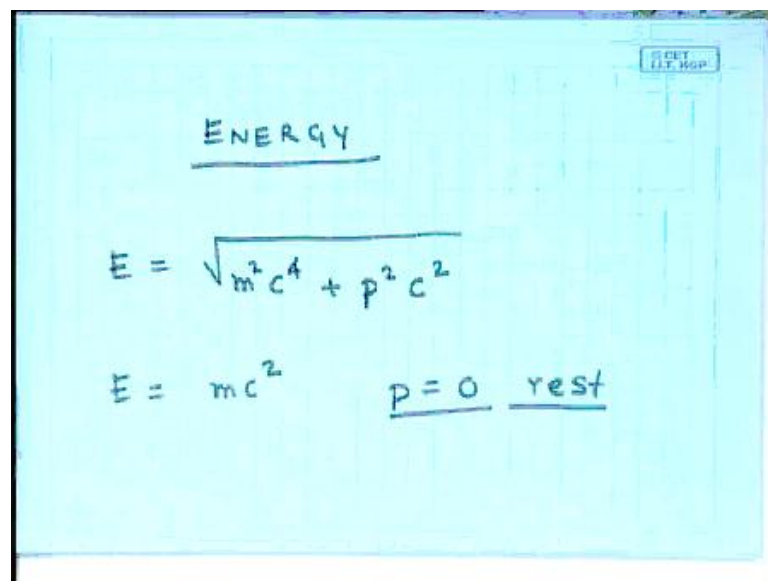 © CET
I.I.T. KGP
ENERGY
E = √(m²c⁴ + p²c²)
E = mc² p = 0 rest